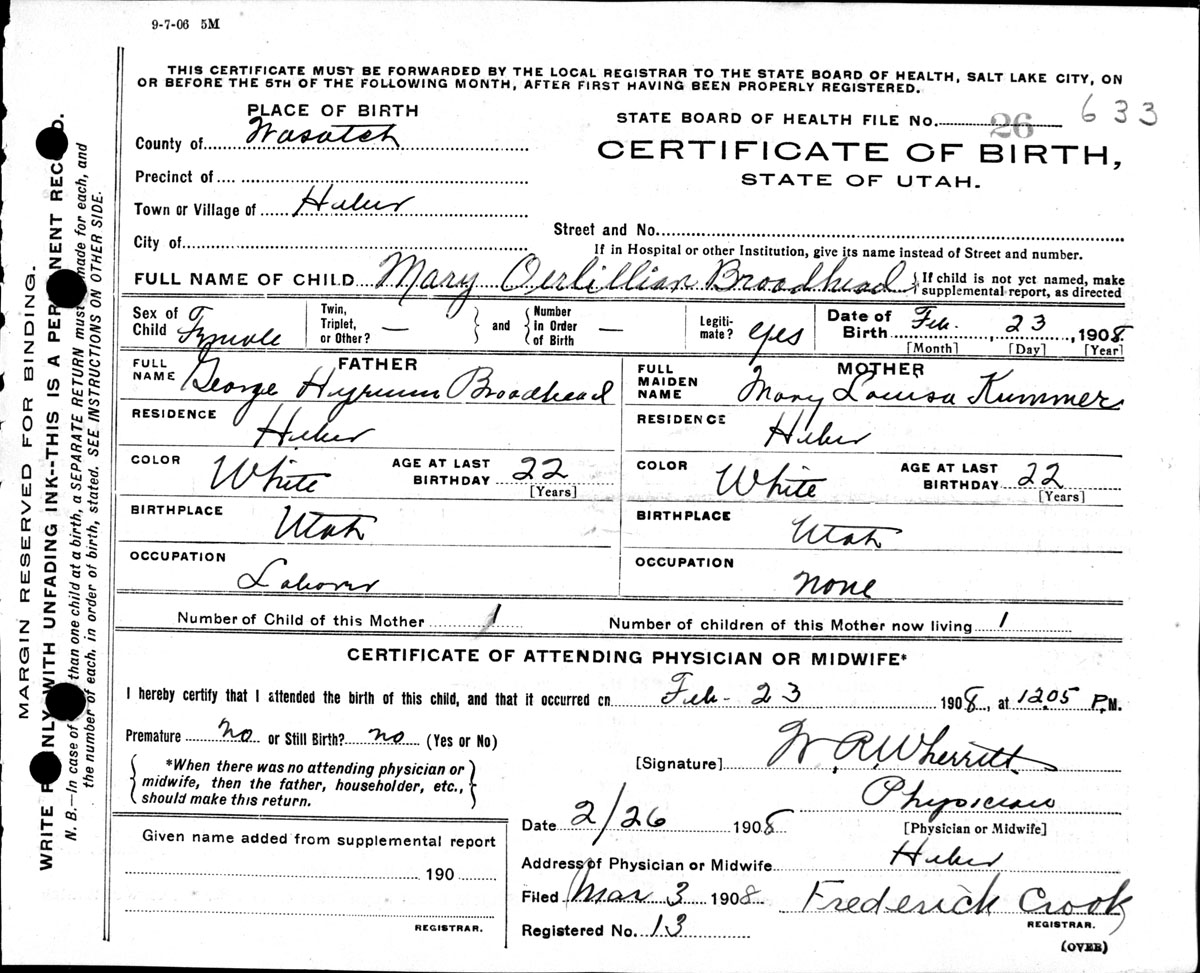 9-7-06 5M
THIS CERTIFICATE MUST BE FORWARDED BY THE LOCAL REGISTRAR TO THE STATE BOARD OF HEALTH, SALT LAKE CITY, ON
OR BEFORE THE 5TH OF THE FOLLOWING MONTH, AFTER FIRST HAVING BEEN PROPERLY REGISTERED.
PLACE OF BIRTH
STATE BOARD OF HEALTH FILE No. 26 633
County of Wasatch
CERTIFICATE OF BIRTH,
STATE OF UTAH.
Precinct of
Town or Village of Heber
Street and No.
City of
If in Hospital or other Institution, give its name instead of Street and number.
FULL NAME OF CHILD Mary Oerlillian Broadhead { If child is not yet named, make
supplemental report, as directed
Sex of Child Female
Twin, Triplet, or Other? —
and
Number in Order of Birth —
Legiti-mate? yes
Date of Birth Feb. 23, 1908
[Month] [Day] [Year]
FATHER
FULL NAME George Hyrum Broadhead
RESIDENCE Heber
COLOR White
AGE AT LAST BIRTHDAY 22
[Years]
BIRTHPLACE Utah
OCCUPATION Laborer
MOTHER
FULL MAIDEN NAME Mary Louisa Kummer
RESIDENCE Heber
COLOR White
AGE AT LAST BIRTHDAY 22
[Years]
BIRTHPLACE Utah
OCCUPATION None
Number of Child of this Mother 1
Number of children of this Mother now living 1
CERTIFICATE OF ATTENDING PHYSICIAN OR MIDWIFE*
I hereby certify that I attended the birth of this child, and that it occurred on Feb - 23 1908, at 12.05 P.M.
Premature no or Still Birth? no (Yes or No)
[Signature] W. R. Wherritt
*When there was no attending physician or
midwife, then the father, householder, etc.,
should make this return.
Physician
[Physician or Midwife]
Date 2/26 1908
Address of Physician or Midwife Heber
Filed Mar 3 1908 Frederick Crook
REGISTRAR.
Registered No. 13
(OVER)
Given name added from supplemental report
190
REGISTRAR.
MARGIN RESERVED FOR BINDING.
WRITE NLY WITH UNFADING INK--THIS IS A PER NENT REC D.
N. B.—In case of than one child at a birth, a SEPARATE RETURN must made for each, and
the number of each, in order of birth, stated. SEE INSTRUCTIONS ON OTHER SIDE.